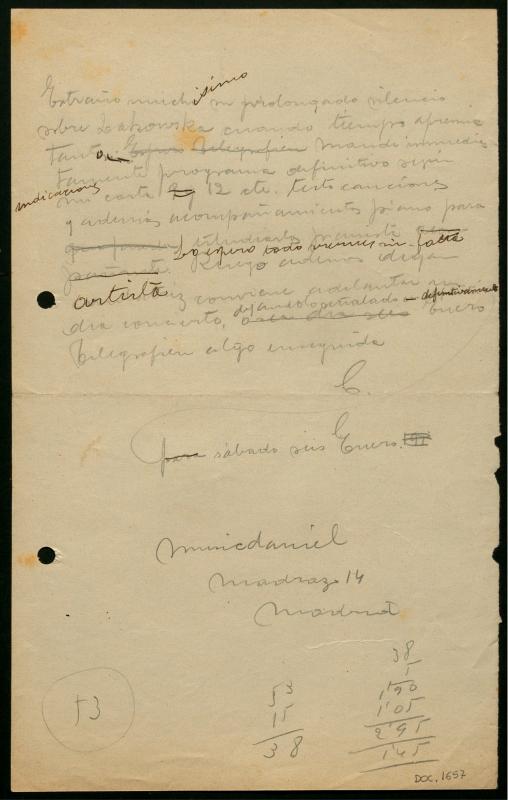 Extraño muchísimo su prolongado silencio
sobre Lakowska cuando tiempo apremia
tanto. Telegrafien mande inmedia-
tamente programa definitivo según
indicaciones
mi carta 12 cte. texto canciones
y además acompañamiento piano para
estudiarlo pianista
Lo espero todo viernes sin falta
Ruego además digan
artista
si conviene adelantar un
día concierto, dejándolo señalado definitivamente
para día seis Enero
Telegrafien algo enseguida
C.
para sábado seis Enero.
Musicdaniel
Madrazo 14
Madrid
53
53
15
38
38
5
1'90
1'05
2'95
1'45
DOC. 1657